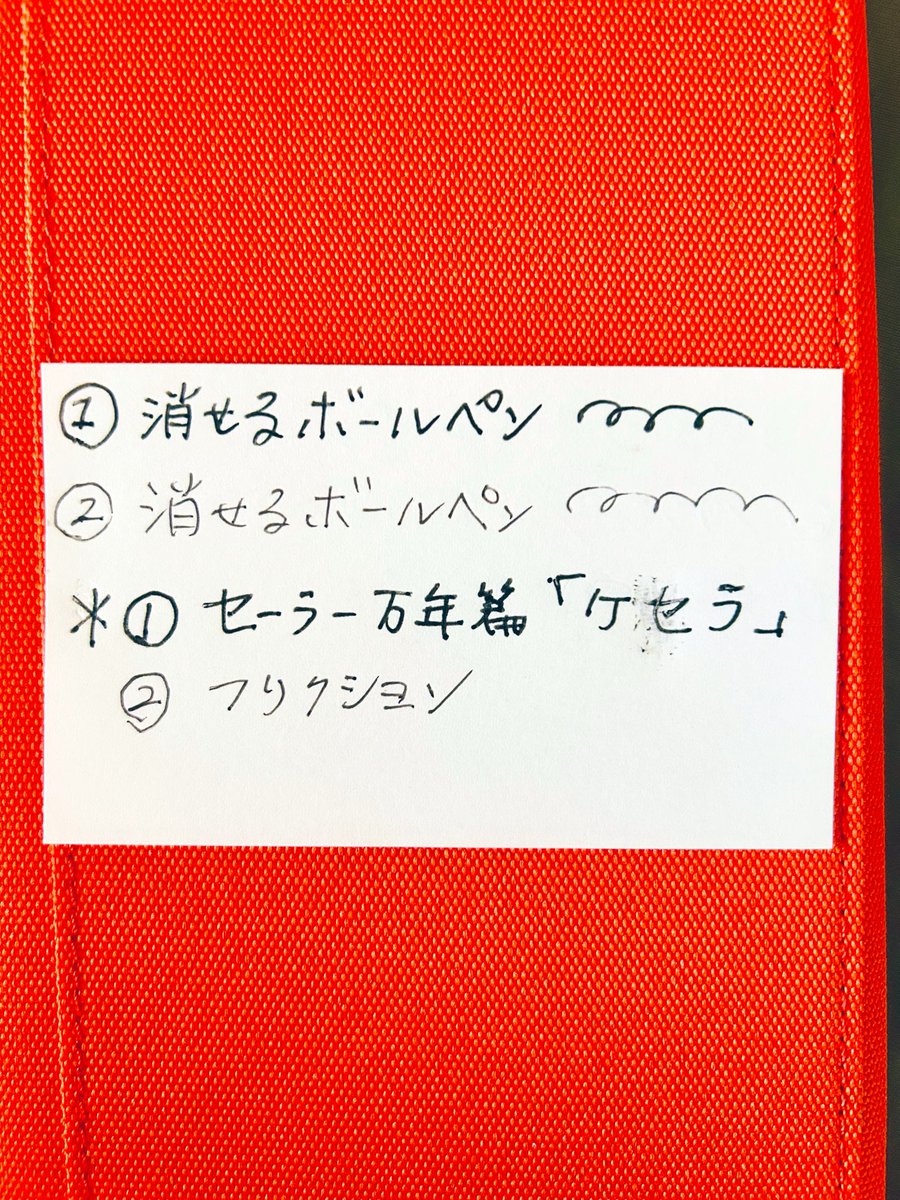 ① 消せるボールペン
② 消せるボールペン
* ① セーラー万年篇「ケセラ」
② フリクション